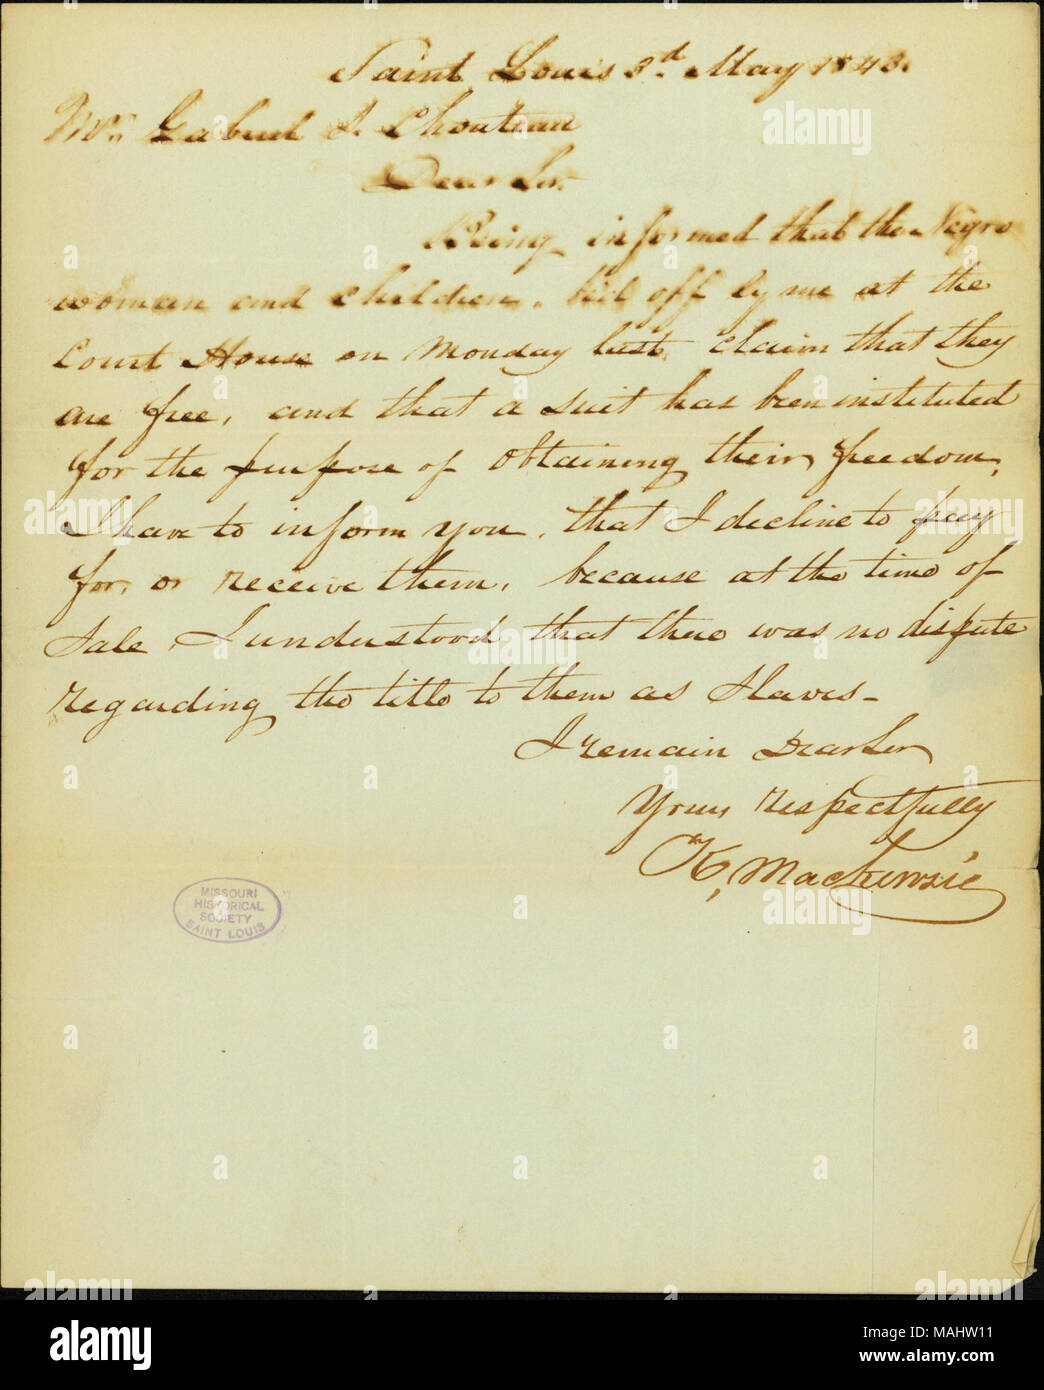 Saint Louis 3d May 1843.
Mr. Gabriel S. Chouteau
Dear Sir.
Being informed that the Negro
woman and children, bid off by me at the
Court House on Monday last, claim that they
are free, and that a suit has been instituted
for the purpose of obtaining their freedom,
I have to inform you, that I decline to pay
for, or receive them, because at the time of
Sale, I understood that there was no dispute
regarding the title to them as Slaves-
I remain Dear Sir
Yours respectfully
K, Mackenzie
MISSOURI
HISTORICAL
SOCIETY
SAINT LOUIS
alamy
Image ID: MAHW11
www.alamy.com